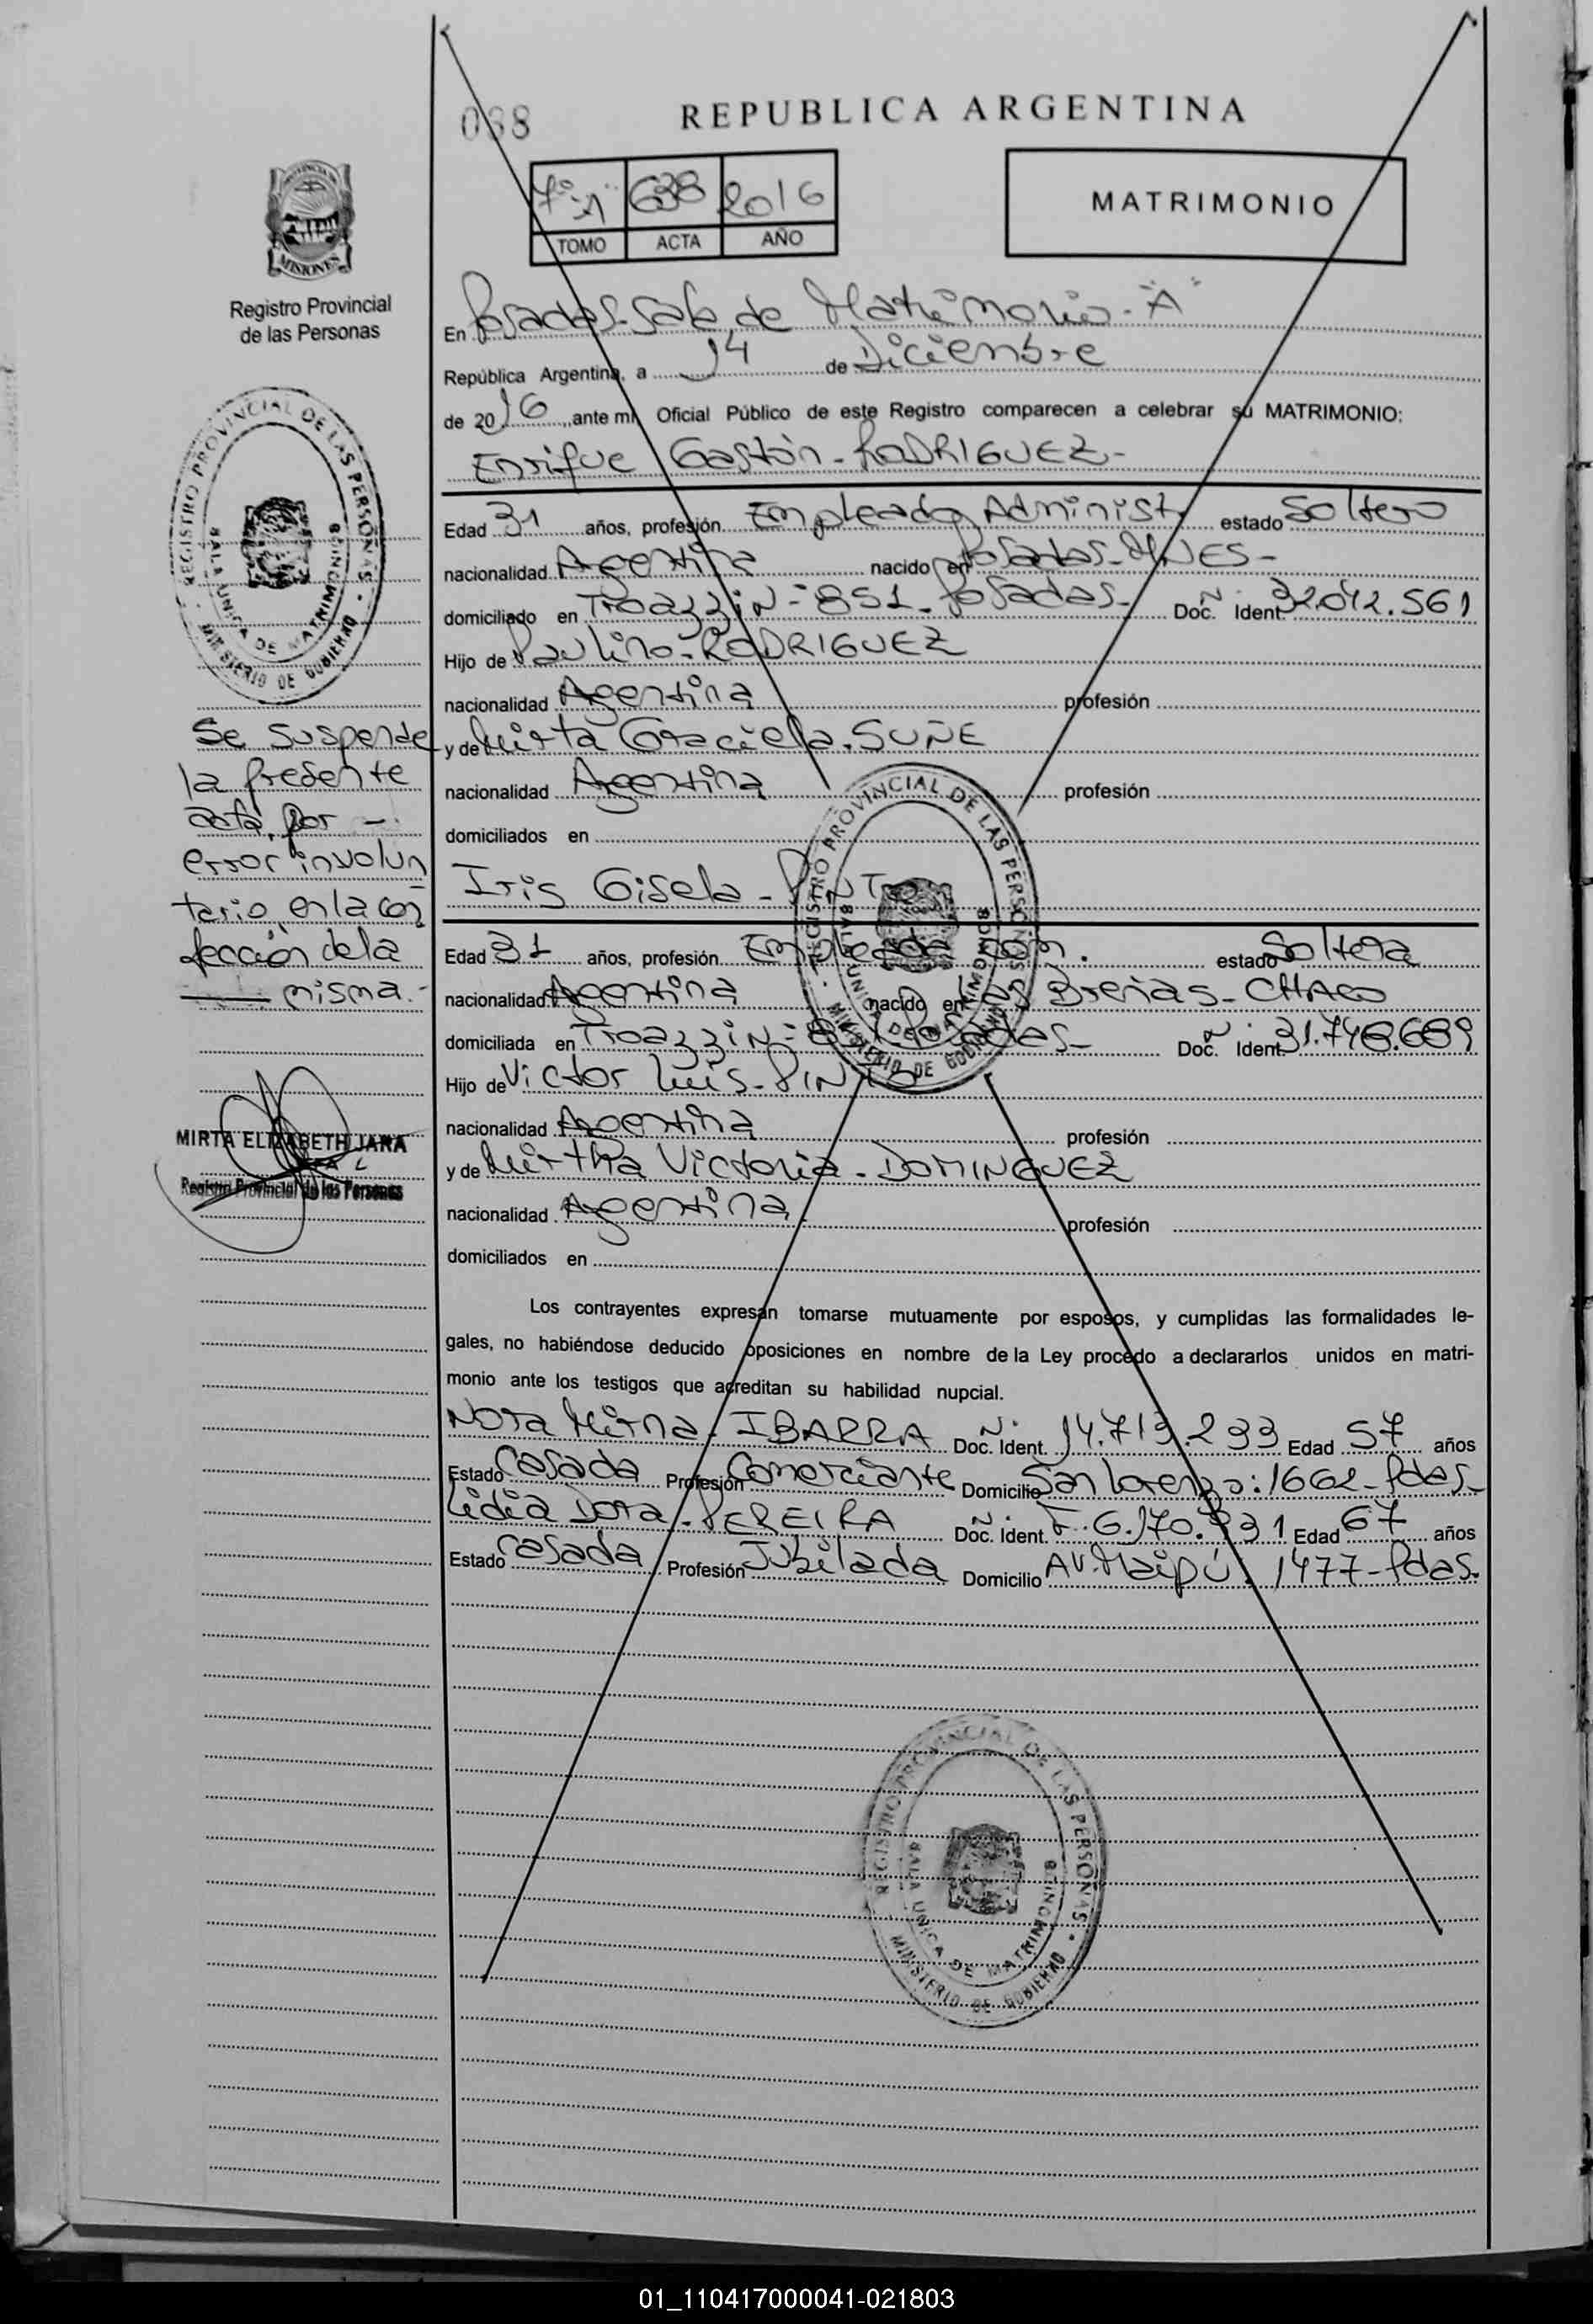 088
REPUBLICA ARGENTINA
7º "A" 638 2016
TOMO ACTA AÑO
MATRIMONIO
PROVINCIA DE
MISIONES
Registro Provincial
de las Personas
En Posadas-Sala de Matrimonio-"A"
República Argentina, a 14 de Diciembre
de 2016, ante mi, Oficial Público de este Registro comparecen a celebrar su MATRIMONIO:
Enrique Gastón-RODRIGUEZ-
Edad 31 años, profesión Empleado Administ. estado Soltero
nacionalidad Argentina nacido en Posadas-MNES-
domiciliado en Troazzin=851-Posadas- Doc. Ident. Nº 32.042.561
Hijo de Paulino-RODRIGUEZ
nacionalidad Argentina profesión
y de Mirta Graciela-SUÑE
nacionalidad Argentina profesión
domiciliados en
Iris Gisela-PINTO
Edad 31 años, profesión Empleada Com. estado Soltera
nacionalidad Argentina nacido en Las Breñas-CHACO
domiciliada en Troazzin=851-Posadas- Doc. Ident. Nº 31.748.689
Hijo de Victor Luis-PINTO
nacionalidad Argentina profesión
y de Mirtha Victoria-DOMINGUEZ
nacionalidad Argentina profesión
domiciliados en
Los contrayentes expresan tomarse mutuamente por esposos, y cumplidas las formalidades le-
gales, no habiéndose deducido oposiciones en nombre de la Ley procedo a declararlos unidos en matri-
monio ante los testigos que acreditan su habilidad nupcial.
Nora Mirna-IBARRA Doc. Ident. Nº 14.713.233 Edad 57 años
Estado Casada Profesión Comerciante Domicilio San Lorenzo:1662-Pdas-
Lidia Dora-PEREIRA Doc. Ident. Nº F.6.170.931 Edad 67 años
Estado Casada Profesión Jubilada Domicilio Av. Maipú: 1477-Pdas.
REGISTRO PROVINCIAL DE LAS PERSONAS
SALA UNICA DE MATRIMONIOS
MINISTERIO DE GOBIERNO
Se suspende
la presente
acta, por -
error involun
tario en la con
fección de la
misma.-
MIRTA ELIZABETH JARA
Registro Provincial de las Personas
REGISTRO PROVINCIAL DE LAS PERSONAS
SALA UNICA DE MATRIMONIOS
MINISTERIO DE GOBIERNO
REGISTRO PROVINCIAL DE LAS PERSONAS
SALA UNICA DE MATRIMONIOS
MINISTERIO DE GOBIERNO
01_110417000041-021803